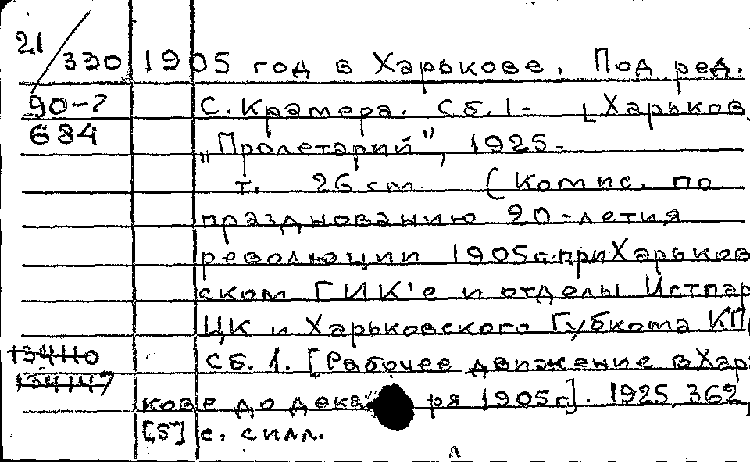 21/330 1905 год в Харькове. Под ред.
90-2 С. Крамера. Сб. 1- [Харьков,
684 „Пролетарий", 1925-
т. 26 см (Комис. по
празднованию 20-летия
революции 1905г. при Харьков
ском ГИК'е и отделы Истпар
ЦК и Харьковского Губкома КП
134110 Сб. 1. [Рабочее движение в Харь
134147 кове до дека ря 1905г]. 1925, 362,
[5] с. с илл.